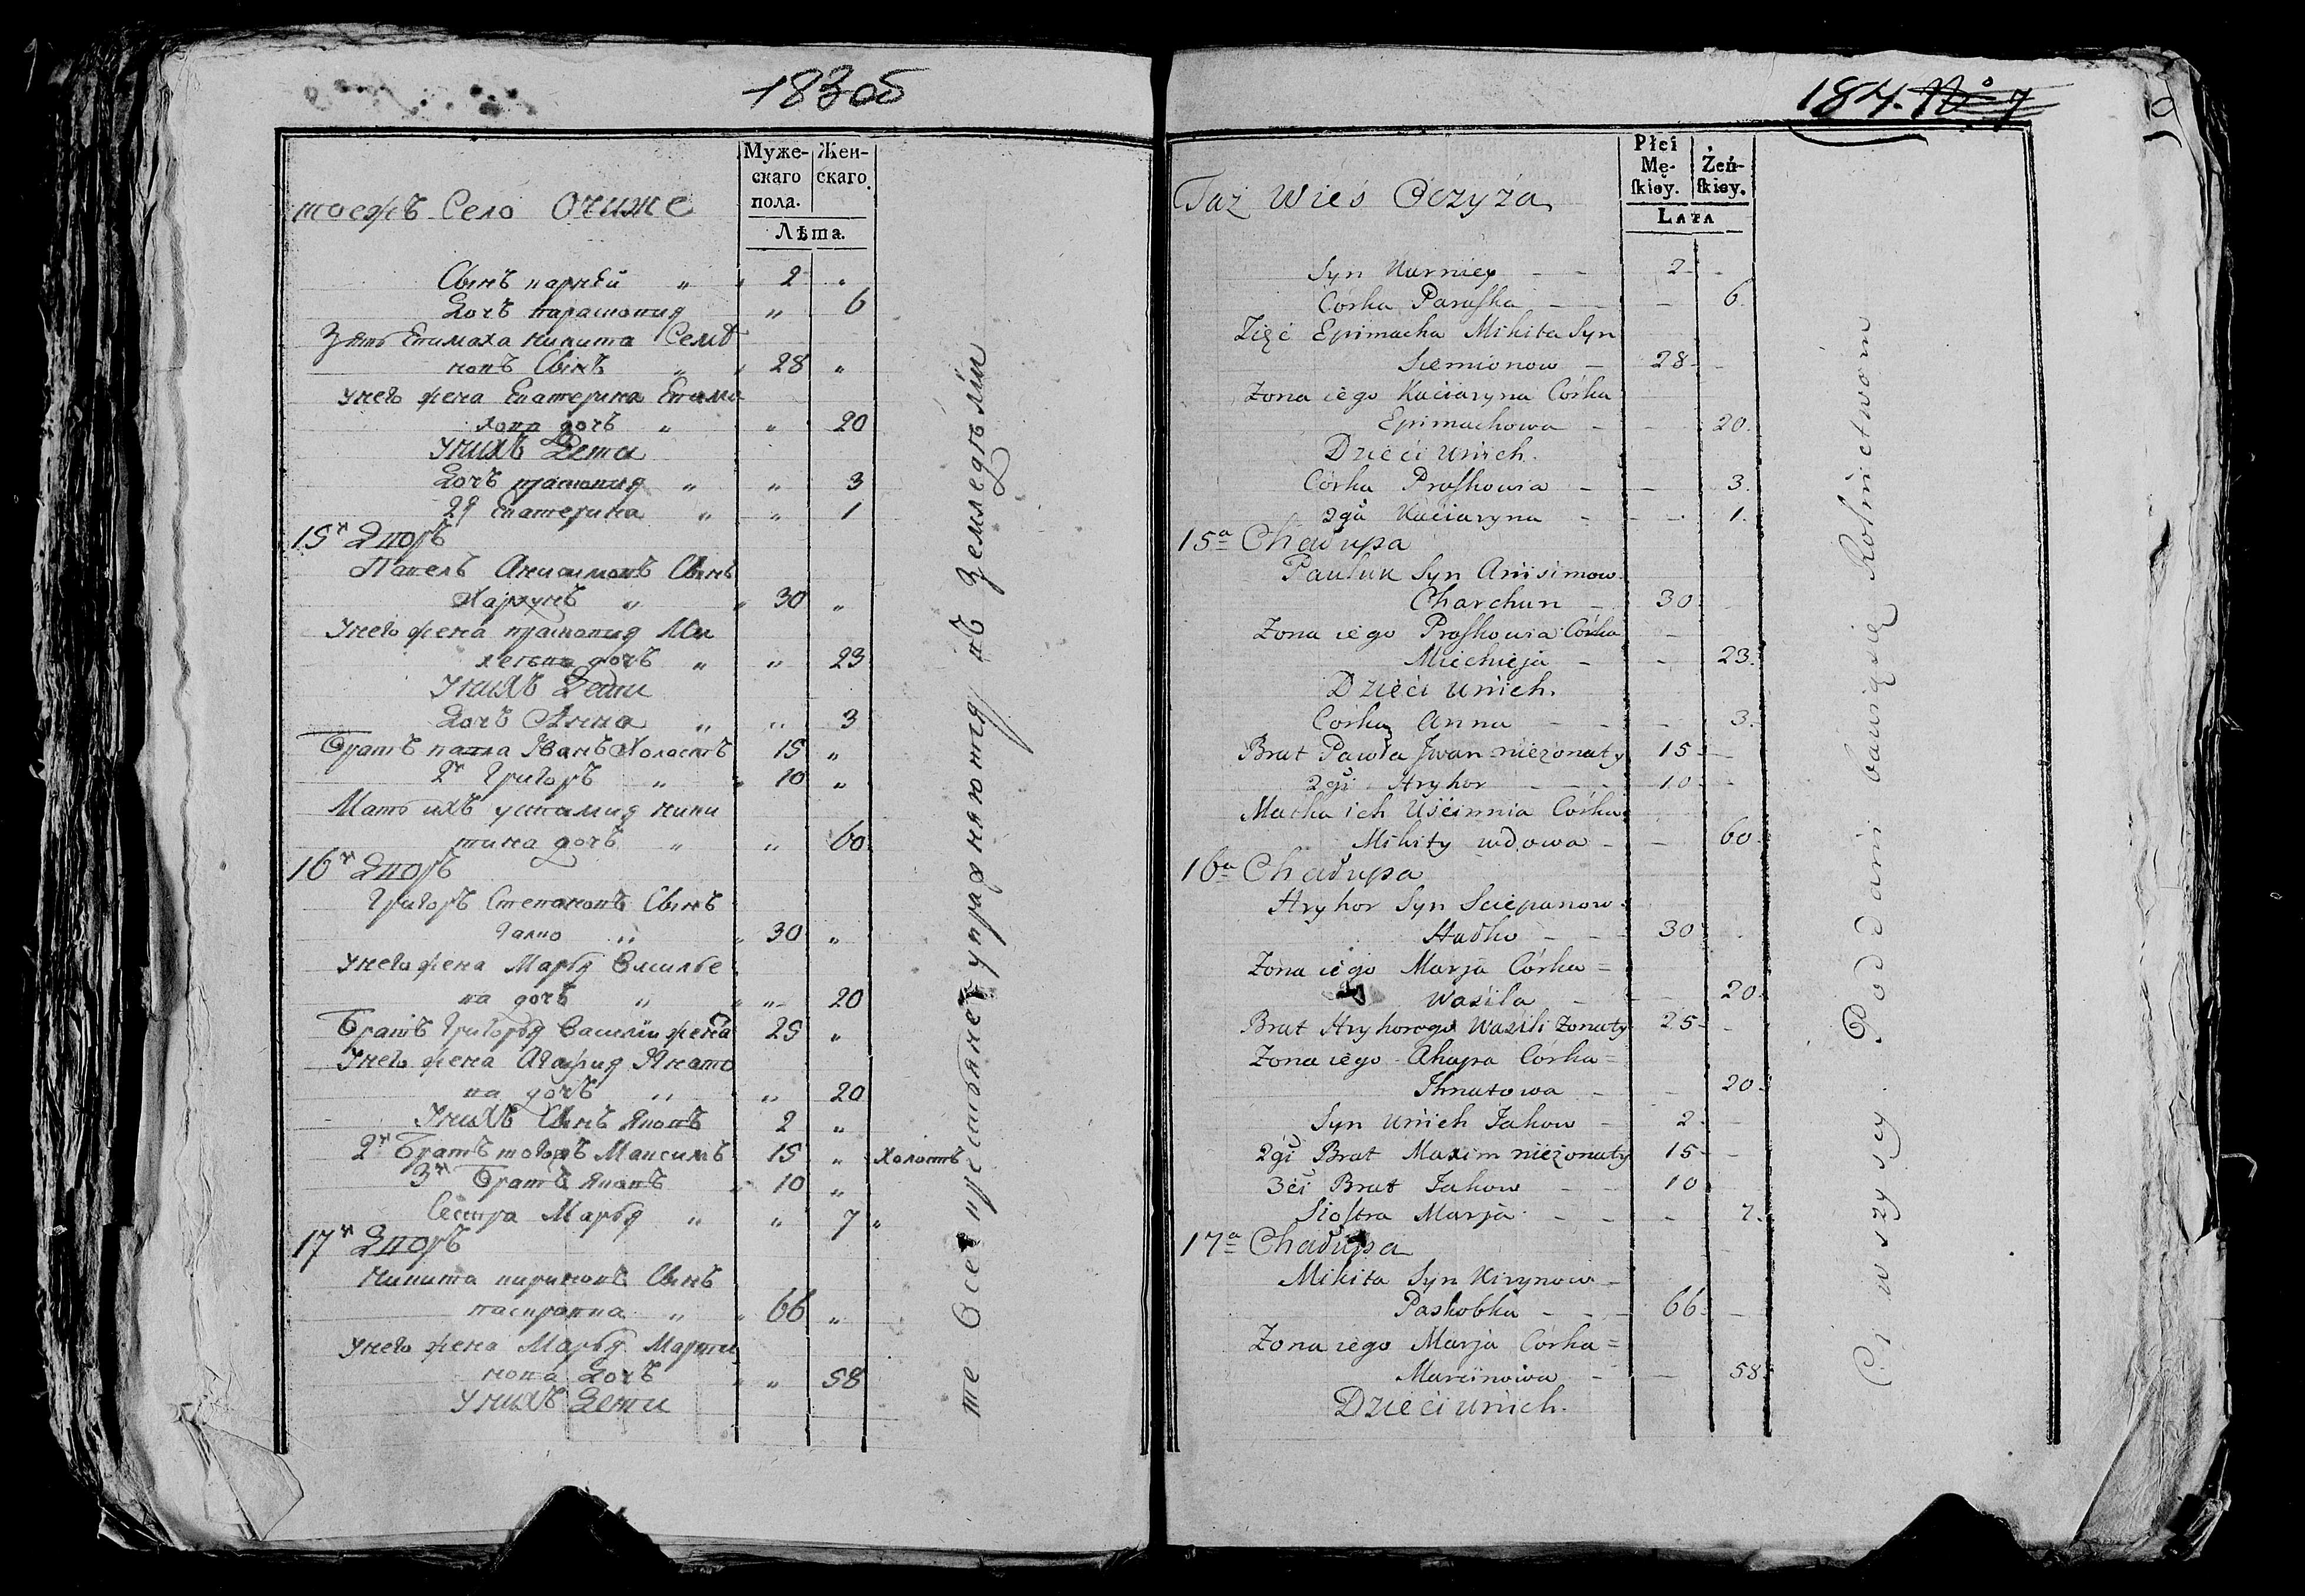 183 об
Муже-
скаго
пола.
Жен-
скаго.
Лѣта.
тоежъ Село Очиже
Сынъ карнѣй „ „ 2 „
Дочъ параскопия „ 6
Зять Епимаха никита Семѣ
нопъ Сынъ „ „ 28 „
унего жена Екатерина Епима
хопа дочъ „ „ 20
Унихъ Дети
Дочъ праскопия „ „ 3
2я Екатерина „ „ 1
15й Дпоръ
Папелъ Анисимопъ Сынъ
Хархунъ „ „ 30 „
Унего жена праскопия Ми
хеепа дочъ „ „ 23
Унихъ Дети
Дочъ Анна „ „ 3
Братъ папла Иванъ Холостъ 15 „
2й Григоръ „ „ 10 „
Мать ихъ устимия ники
тина дочъ „ „ 60
16й Дпоръ
Григоръ Степанопъ Сынъ
Галко „ „ 30 „
унего жена Марья Василье
па дочъ „ „ 20
Братъ Григорья Василій жена 25 „
Унего жена Агафия Игнато
па дочъ „ „ 20
Унихъ Сынъ Якопъ 2 „
2й Братъ тогожъ Максимъ 15 „ Холостъ
3й Братъ Якопъ „ 10 „
Сестра Марья „ „ 7 „
17й Дпоръ
Никита кирикопъ Сынъ
паскропка „ „ 66 „
унего жена Марья Марти
нопа Дочъ „ „ 58
Унихъ Дети
те Все престьяне упражняются пъ Земледѣлии
184. No 7
Płci
Mę-
skiey.
Żeń-
skiey.
Lata
Taż Wieś Oczyża
Syn Karniey – – 2 –
Córka Paraska – – – 6.
Zięć Epimacha Mikita Syn
Siemionow – 28 –
Żona iego Kaciaryna Córka
Epimachowa – – 20.
Dzieci unich.
Córka Proskowia – – 3.
2ga Kaciaryna – – 1.
15a Chałupa
Pauluk Syn Anisimow
Charchun – 30 –
Żona iego Proskowia Córka
Miechieja – – 23.
Dzieci unich.
Córka Anna – – – 3.
Brat Pawła Jwan nieżonaty 15 –
2gi Hryhor – – – 10 –
Matka ich Uścimnia Córka
Mikity wdowa – – 60
16a Chałupa
Hryhor Syn Sciepanow
Hałko – – 30
Żona iego Marja Córka =
Wasila – – 20
Brat Hryhorego Wasili żonaty 25 –
Żona iego Ahapa Córka =
Ihnatowa – – 20
Syn unich Jakow – 2 –
2gi Brat Maxim nieżonaty 15 –
3ći Brat Jakow – – 10
Siostra Marja – – – 7.
17a Chałupa
Mikita Syn Kirynow –
Paskobka – – – 66 –
Żona iego Marja Córka =
Marcinowa – – 58
Dzieci unich.
Ci wszyscy Poddani bawią się Rolnictwom